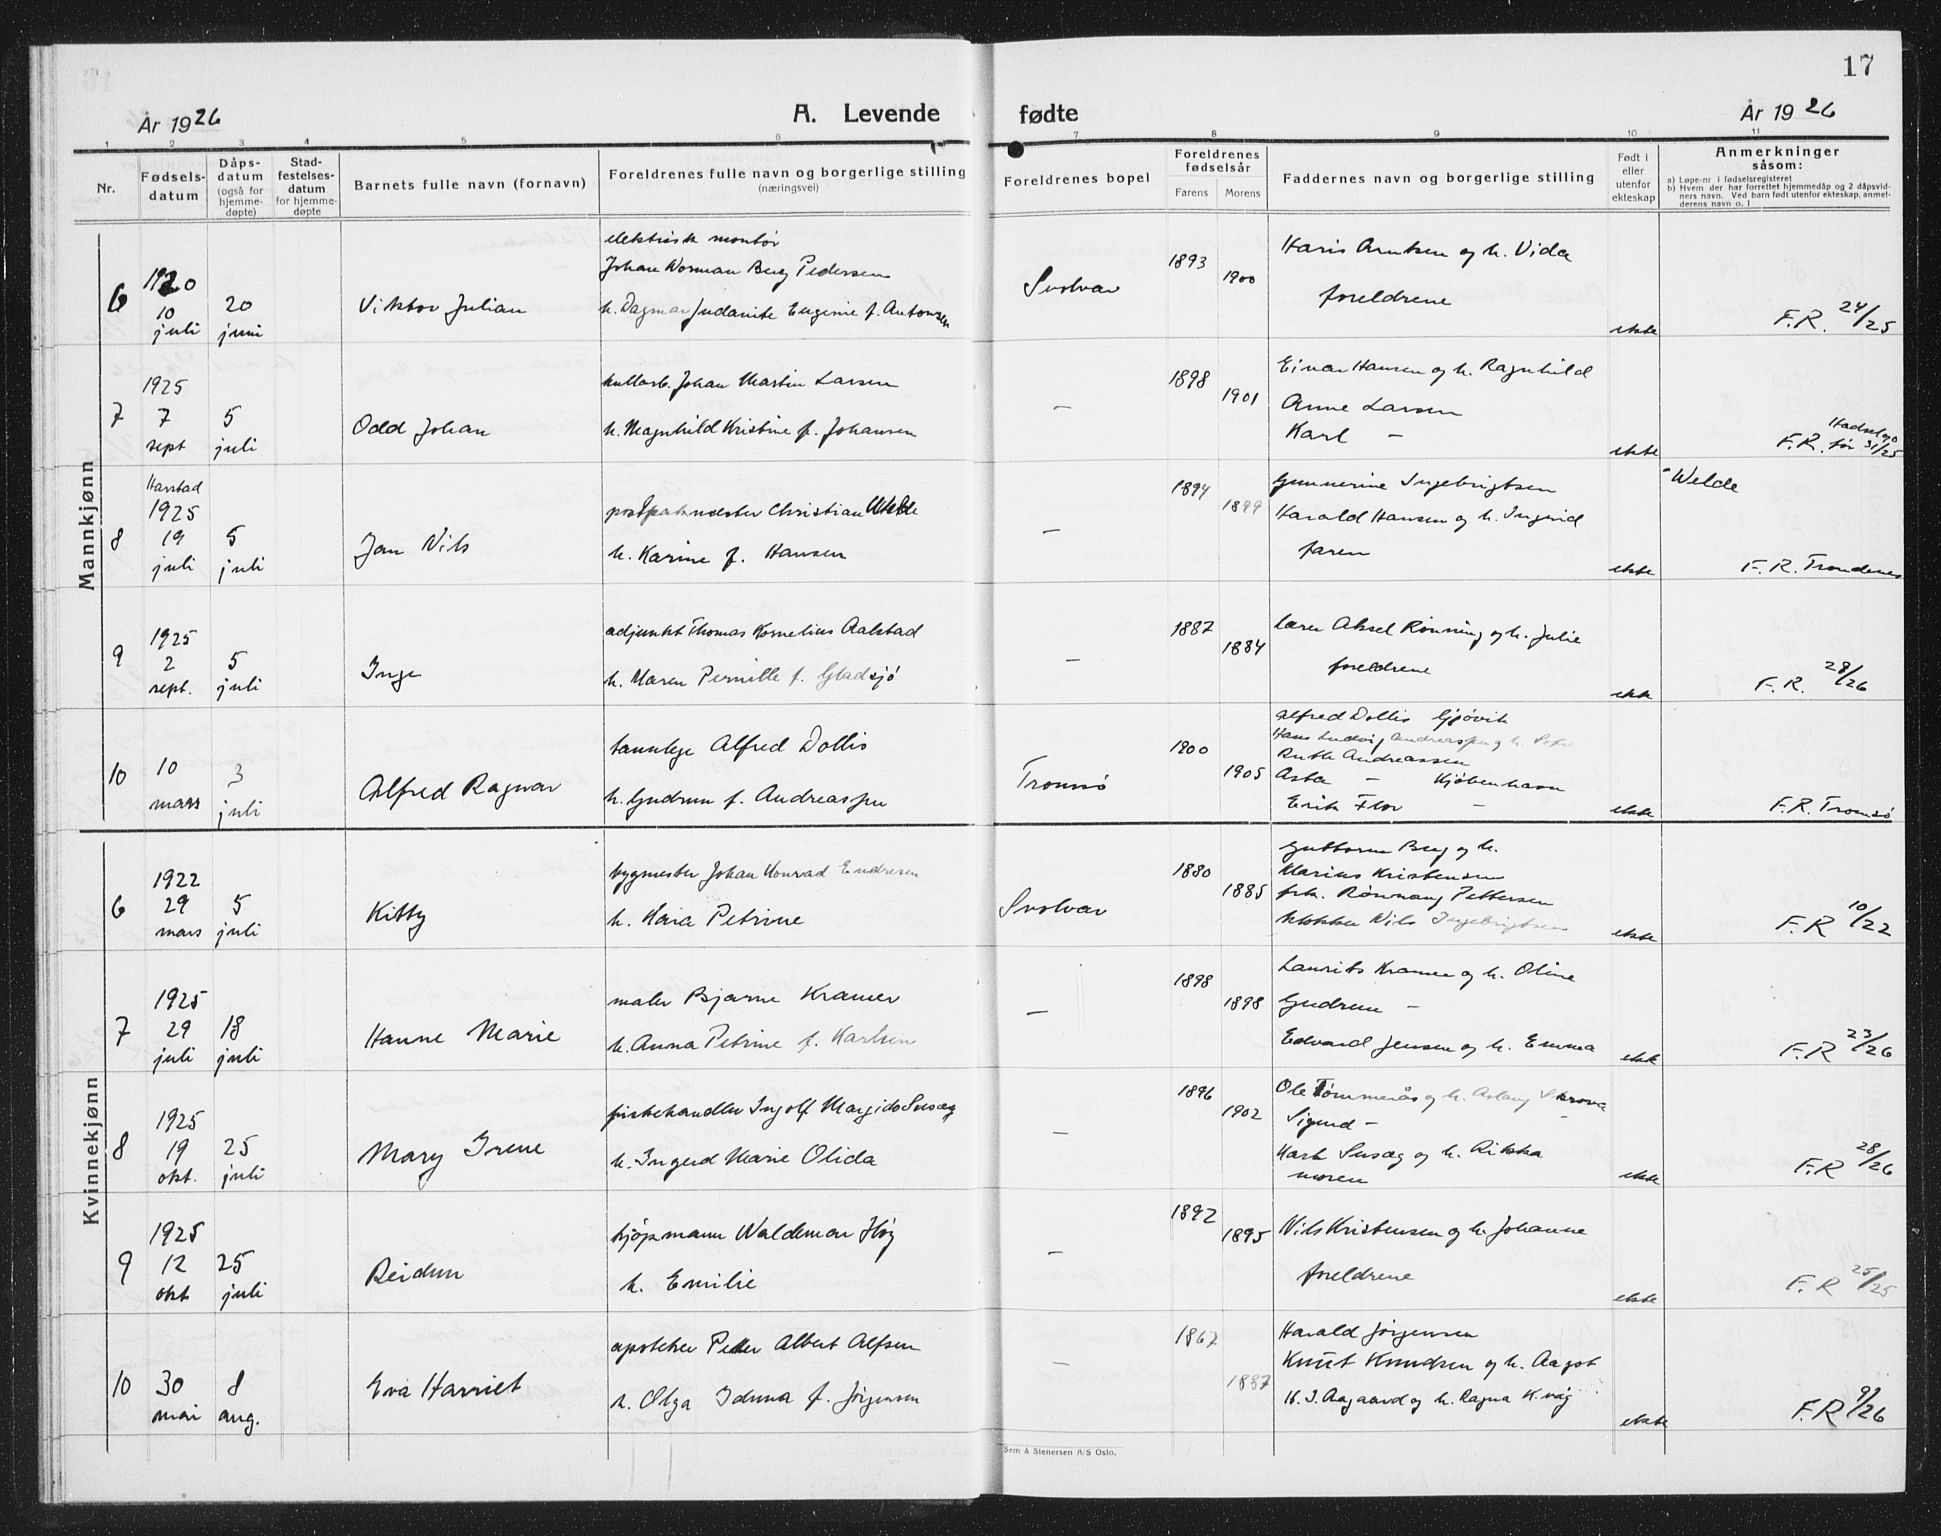 17
År 1926
A. Levende fødte
År 1926
1 2 3 4 5 6 7 8 9 10 11
Nr.
Fødselsdatum
Dåpsdatum (også for hjemmedøpte)
Stadfestelsesdatum for hjemmedøpte
Barnets fulle navn (fornavn)
Foreldrenes fulle navn og borgerlige stilling (næringsvei)
Foreldrenes bopel
Foreldrenes fødselsår
Farens Morens
Faddernes navn og borgerlige stilling
Født i eller utenfor ekteskap
Anmerkninger såsom:
a) Løpe-nr i fødselsregisteret
b) Hvem der har forrettet hjemmedåp og 2 dåpsvidners navn. Ved barn født utenfor ekteskap, anmelderens navn o. l
Mannkjønn
6
1920 10 juli
20 juni
Viktor Julian
elektrisk montør
Johan Norman Berg Pedersen
h. Dagmar Judanite Eugenie f. Antonsen
Svolvær
1893 1900
Haris Arntsen og h. Vida
foreldrene
ekte
F.R. 24/25
7
1925 7 sept
5 juli
Odd Johan
kullarb. Johan Martin Larsen
h. Magnhild Kristine f. Johansen
—
1898 1901
Einar Hansen og h. Ragnhild
Anne Larsen
Karl —
ekte
F.R. for 31/25
8
Harstad 1925 19 juli
5 juli
Jan Nils
Christian Welde
h. Karine f. Hansen
—
1894 1899
Gunnerine Ingebrigtsen
Harald Hansen og h. Ingrid
faren
ekte
- Welde
F.R. Trondenes
9
1925 2 sept.
5 juli
Inge
adjunkt Thomas Kornelius Aalstad
h. Maren Pernille f. Gladsjö
—
1887 1884
Lærer Aksel Rønning og h. Julie
foreldrene
ekte
F.R. 28/26
10
10 mars
3 juli
Alfred Ragnar
tannlege Alfred Dollis
h. Gudrun f. Andreassen
Tromsö
1900 1905
Alfred Dollis Gjøvik
Hans Ludvig Andreassen og h.
Ruth Andreassen
Asta — Kjøbenhavn
Erik Flor —
ekte
F.R. Tromsö
Kvinnekjønn
6
1922 29 mars
5 juli
Kitty
bygmester Johan Konrad Endresen
h. Hara Petrine
Svolvær
1880 1885
Guttorm Berg og h.
Marius Kristensen
frk. Rønnaug Pettersen
klokker Nils Ingebrigtsen
ekte
F.R 10/22
7
1925 29 juli
18 juli
Hanne Marie
maler Bjarne Kramer
h. Anna Petrine f. Karlsen
—
1898 1898
Laurits Kramer og h. Oline
Gudrun —
Edvard Jensen og h. Emma
ekte
F.R 23/26
8
1925 19 okt.
25 juli
Mary Irene
fiskehandler Ingolf Margido Svsæg
h. Ingerd Marie Olida
—
1896 1902
Ole Tømmerås og h. Aslaug Skrova
Sigurd — —
Karl Svsæg og h. Rikka
moren
ekte
F.R 28/26
9
1925 12 okt
25 juli
Reidun
kjøpmann Waldemar Høy
h. Emilie
—
1892 1895
Nils Kristensen og h. Johanne
foreldrene
ekte
F.R 25/25
10
30 mai
8 aug.
Eva Harriet
apoteker Peder Albert Alfsen
h. Olga Iduna f. Jørgensen
—
1867 1887
Harald Jørgensen
Knut Knudsen og h. Aagot
K.J. Aagaard og h. Ragna
ekte
F.R 9/26
Sem & Stenersen A/S Oslo.